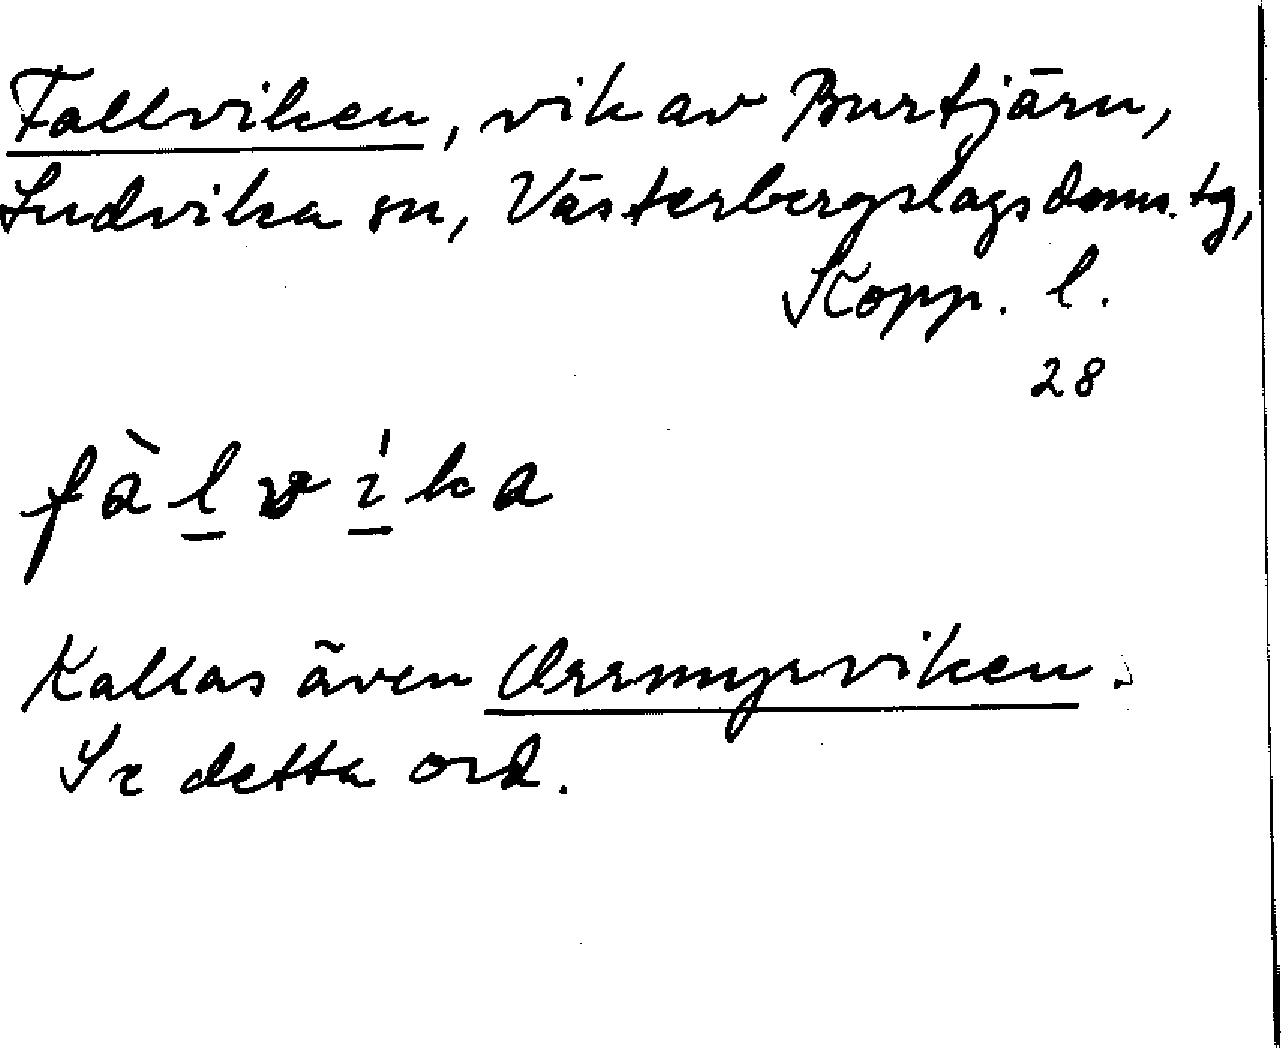 Fallviken, vik av Burtjärn,
Ludvika sn, Västerbergslags doms. tg,
Kopp. l.
28
fàl̲vi̲̍ka
Kallas även Orrmyrviken.
Se detta ord.